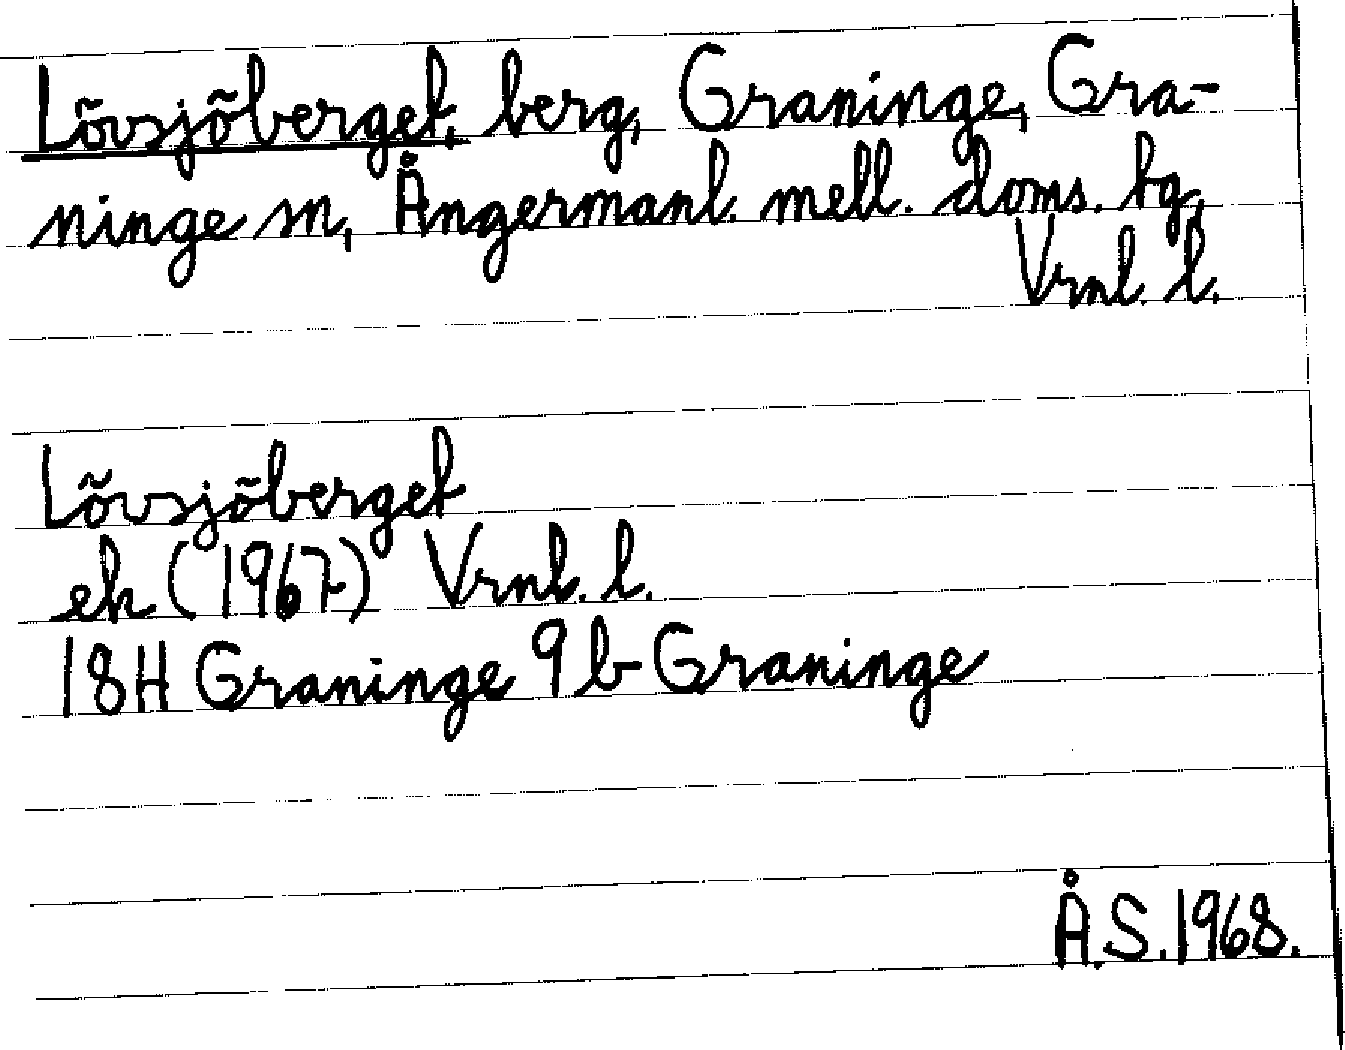 Lövsjöberget, berg, Graninge, Gra-
ninge sn, Ångermanl. mell. doms. tg,
Vrnl. l.
Lövsjöberget
ek (1967) Vrnl. l.
18H Graninge 9b Graninge
Å.S. 1968.